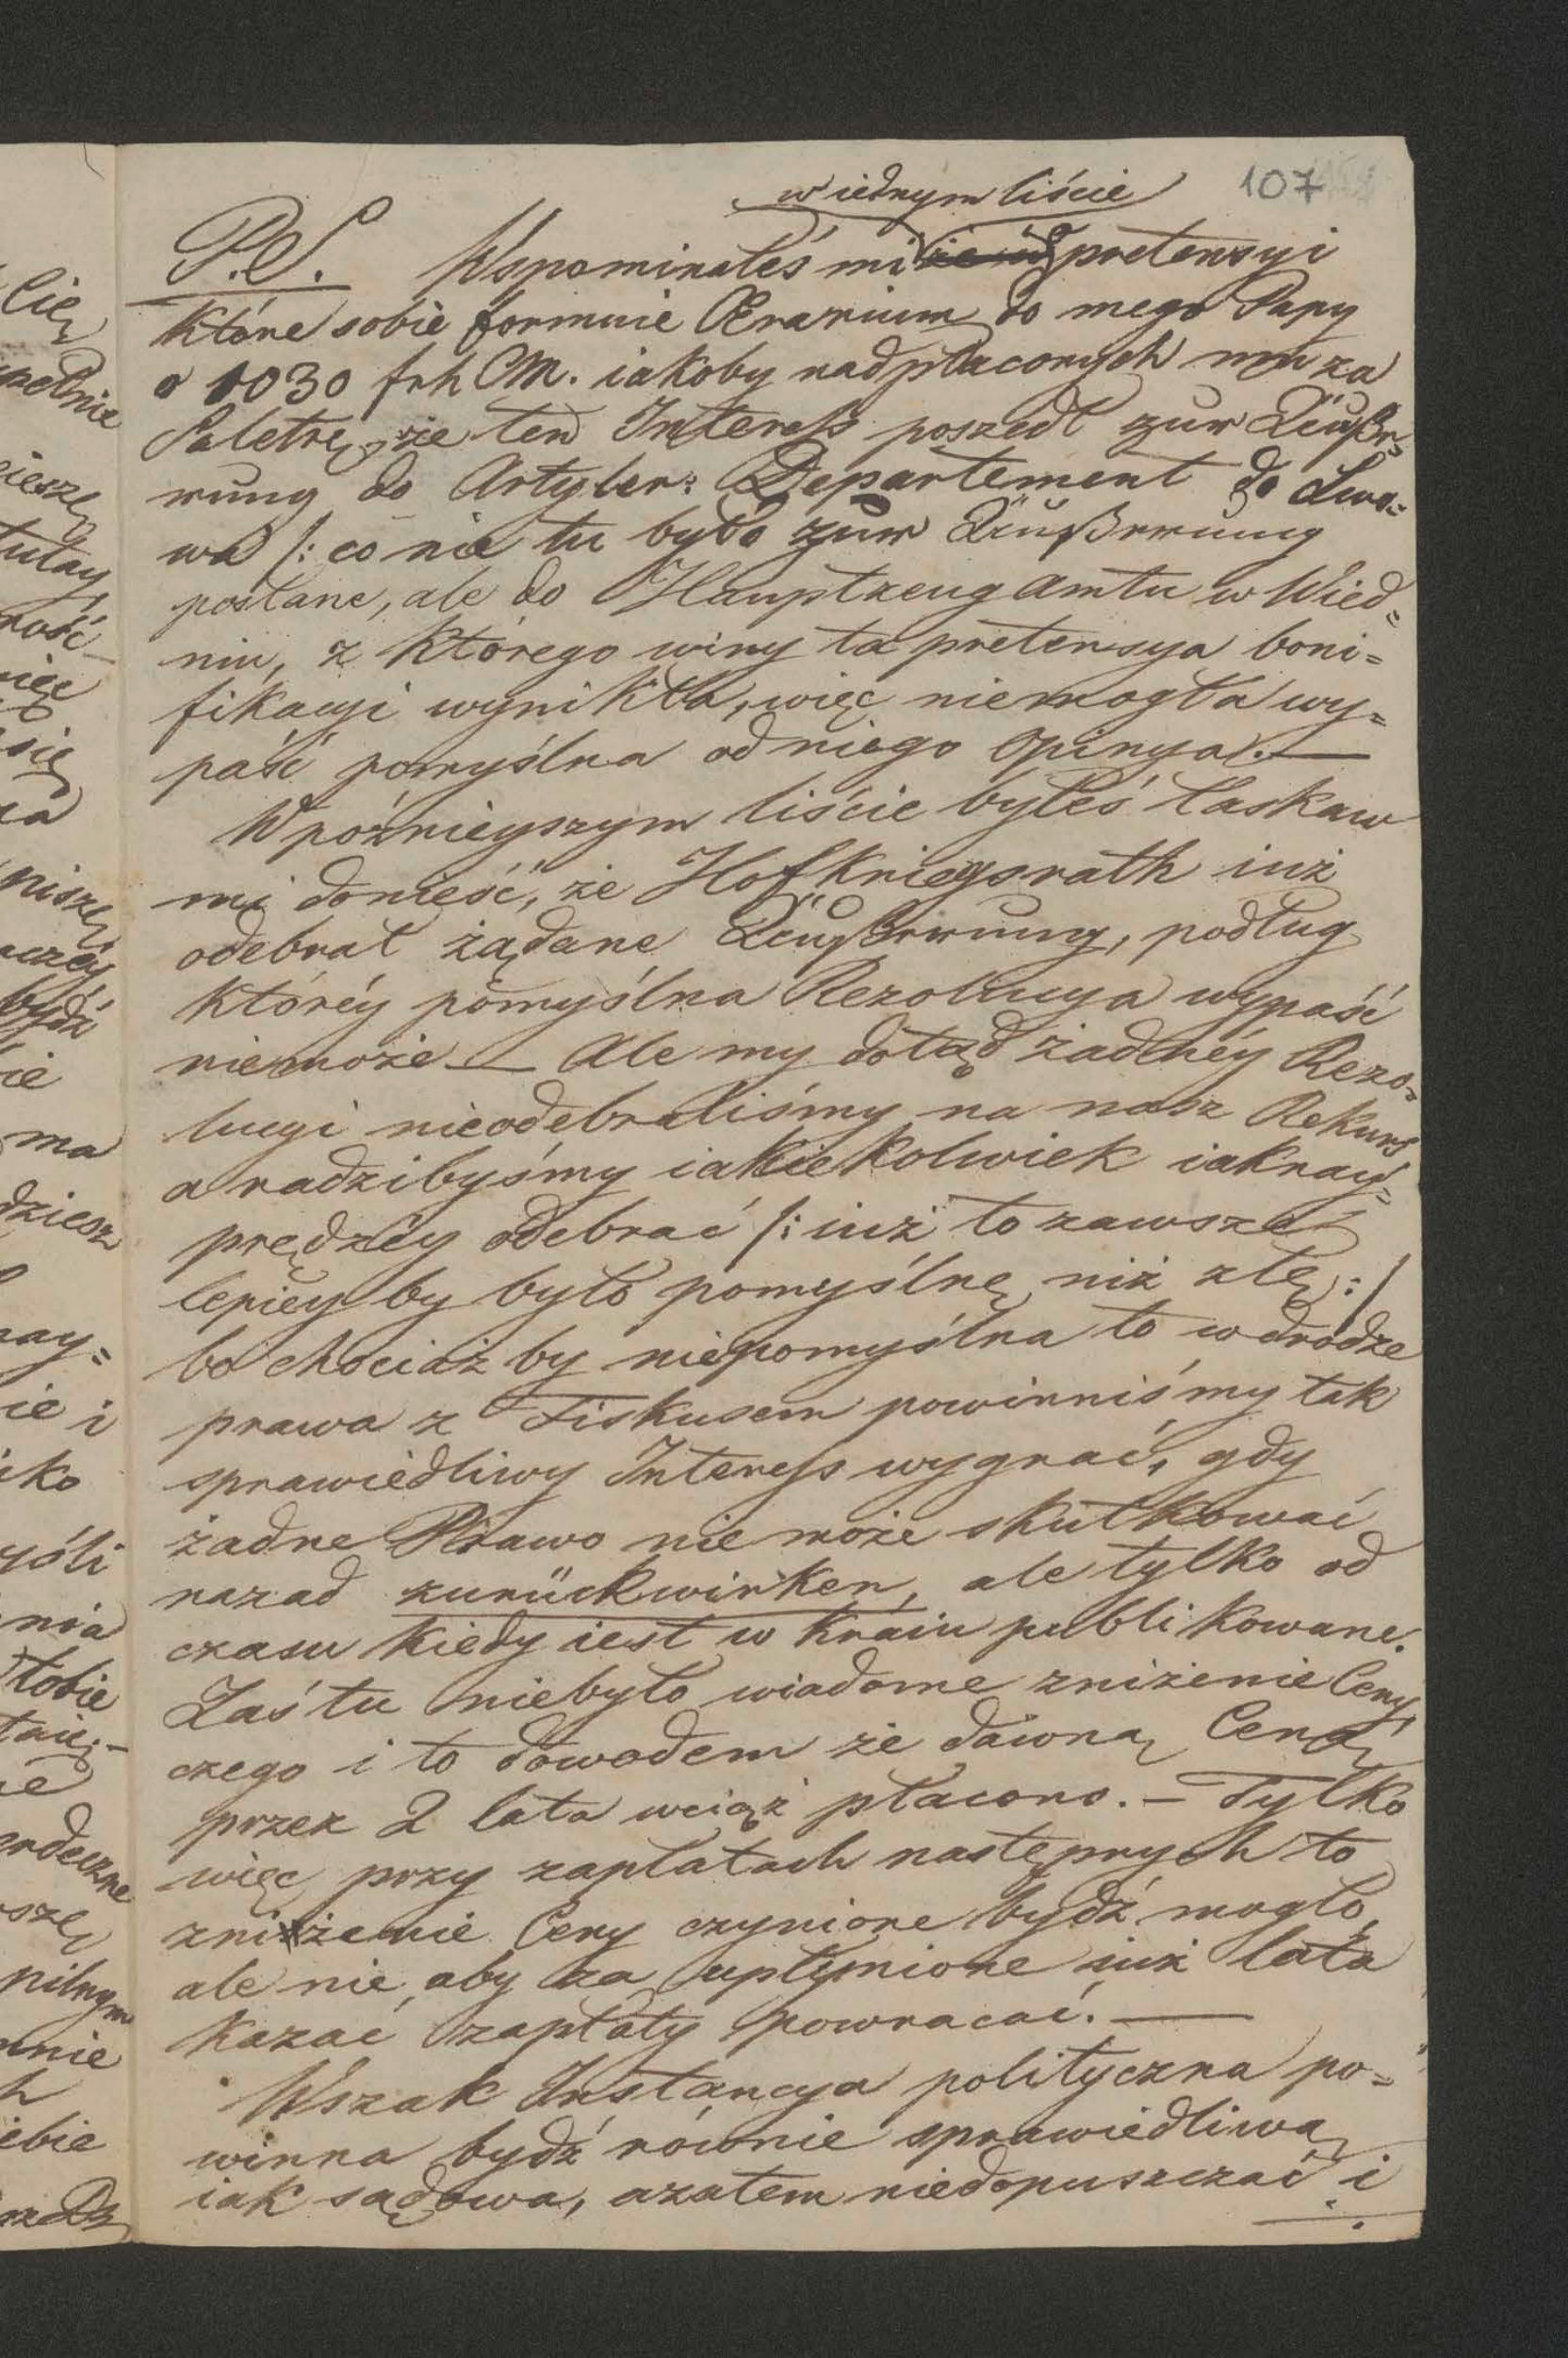 107
w iednym liście
P.S. Wspominałeś mi o pretensyi
które sobie formuie Ærarium do mego Papy
o 1030 frh CM. iakoby nadpłaconych mu za
Saletrę, że ten Interess poszedł zur Äußr¬
rung do Artyler: Departement do Lwo=
wa /: co nie tu było zur Äußrrung
posłane, ale do Hauptzeugamtu w Wied=
niu, z którego winy ta pretensya boni=
fikacyi wynikła, więc niemogła wy=
paść pomyślna od niego Opinya. —
W poźnieyszym liście byłeś łaskaw
mi donieść, że Hofkriegsrath iuż
odebrał żądane Äußrrung, podług
któréy pomyślna Rezolucya wypaść
niemoże — Ale my dotąd żadnéy Rezo=
lucyi nieodebraliśmy na nasz Rekurs
a radzibyśmy iakiekolwiek iaknay=
prędzéy odebrać /: iuż to zawsze
lepiéy by było pomyślnę niż złę :/
bo chociaż by niepomyślna to w drodze
prawa z Fiskusem powinniśmy tak
sprawiedliwy Interess wygrać, gdy
żadne Prawo nie może skutkować
nazad zurückwirken, ale tylko od
czasu kiedy iest w Kraiu publikowane.
Zaś tu niebyło wiadome zniżenie Ceny,
czego i to dowodem że dawną Cenę
przez 2 lata wciąż płacono. — Tylko
więc przy zapłatach następnych to
zniżenie Ceny czynione bydź mogło,
ale nie, aby za upłynione iuż lata
kazać zapłaty powracać. —
Wszak Instancya polityczna po=
winna bydź równie sprawiedliwą
iak sądowa, azatem niedopuszczać i